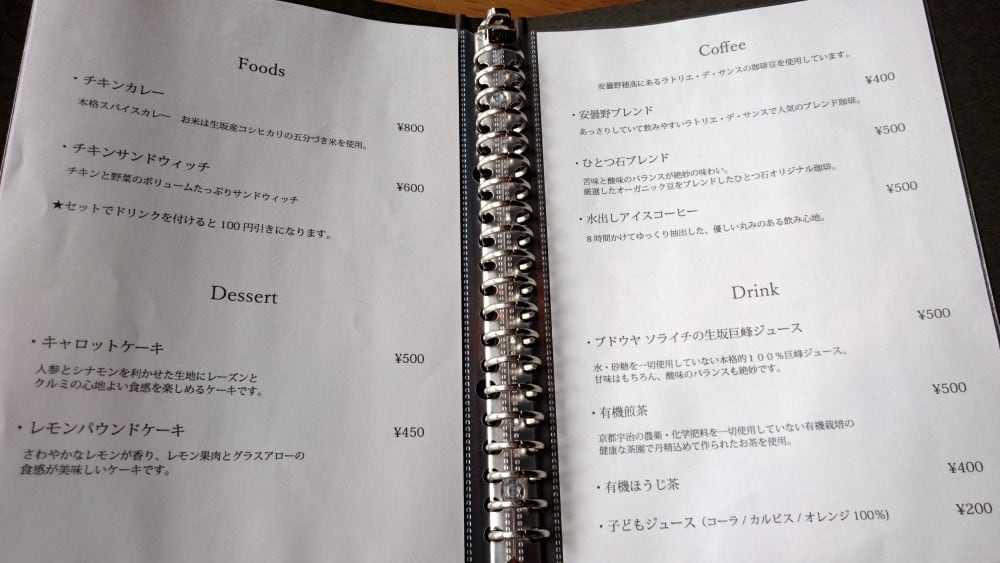 Foods
・チキンカレー
本格スパイスカレー　お米は生坂産コシヒカリの五分づき米を使用。
¥800
・チキンサンドウィッチ
チキンと野菜のボリュームたっぷりサンドウィッチ
¥600
★セットでドリンクを付けると 100 円引きになります。
Dessert
・キャロットケーキ
¥500
人参とシナモンを利かせた生地にレーズンと
クルミの心地よい食感を楽しめるケーキです。
・レモンパウンドケーキ
¥450
さわやかなレモンが香り、レモン果肉とグラスアローの
食感が美味しいケーキです。
Coffee
安曇野穂高にあるラトリエ・デ・サンスの珈琲豆を使用しています。
¥400
・安曇野ブレンド
あっさりしていて飲みやすいラトリエ・デ・サンスで人気のブレンド珈琲。
¥500
・ひとつ石ブレンド
苦味と酸味のバランスが絶妙の味わい。
厳選したオーガニック豆をブレンドしたひとつ石オリジナル珈琲。
¥500
・水出しアイスコーヒー
８時間かけてゆっくり抽出した、優しい丸みのある飲み心地。
Drink
¥500
・ブドウヤ ソライチの生坂巨峰ジュース
水・砂糖を一切使用していない本格的１００％巨峰ジュース。
甘味はもちろん、酸味のバランスも絶妙です。
¥500
・有機煎茶
京都宇治の農薬・化学肥料を一切使用していない有機栽培の
健康な茶園で丹精込めて作られたお茶を使用。
¥400
・有機ほうじ茶
¥200
・子どもジュース（コーラ / カルピス / オレンジ 100%）